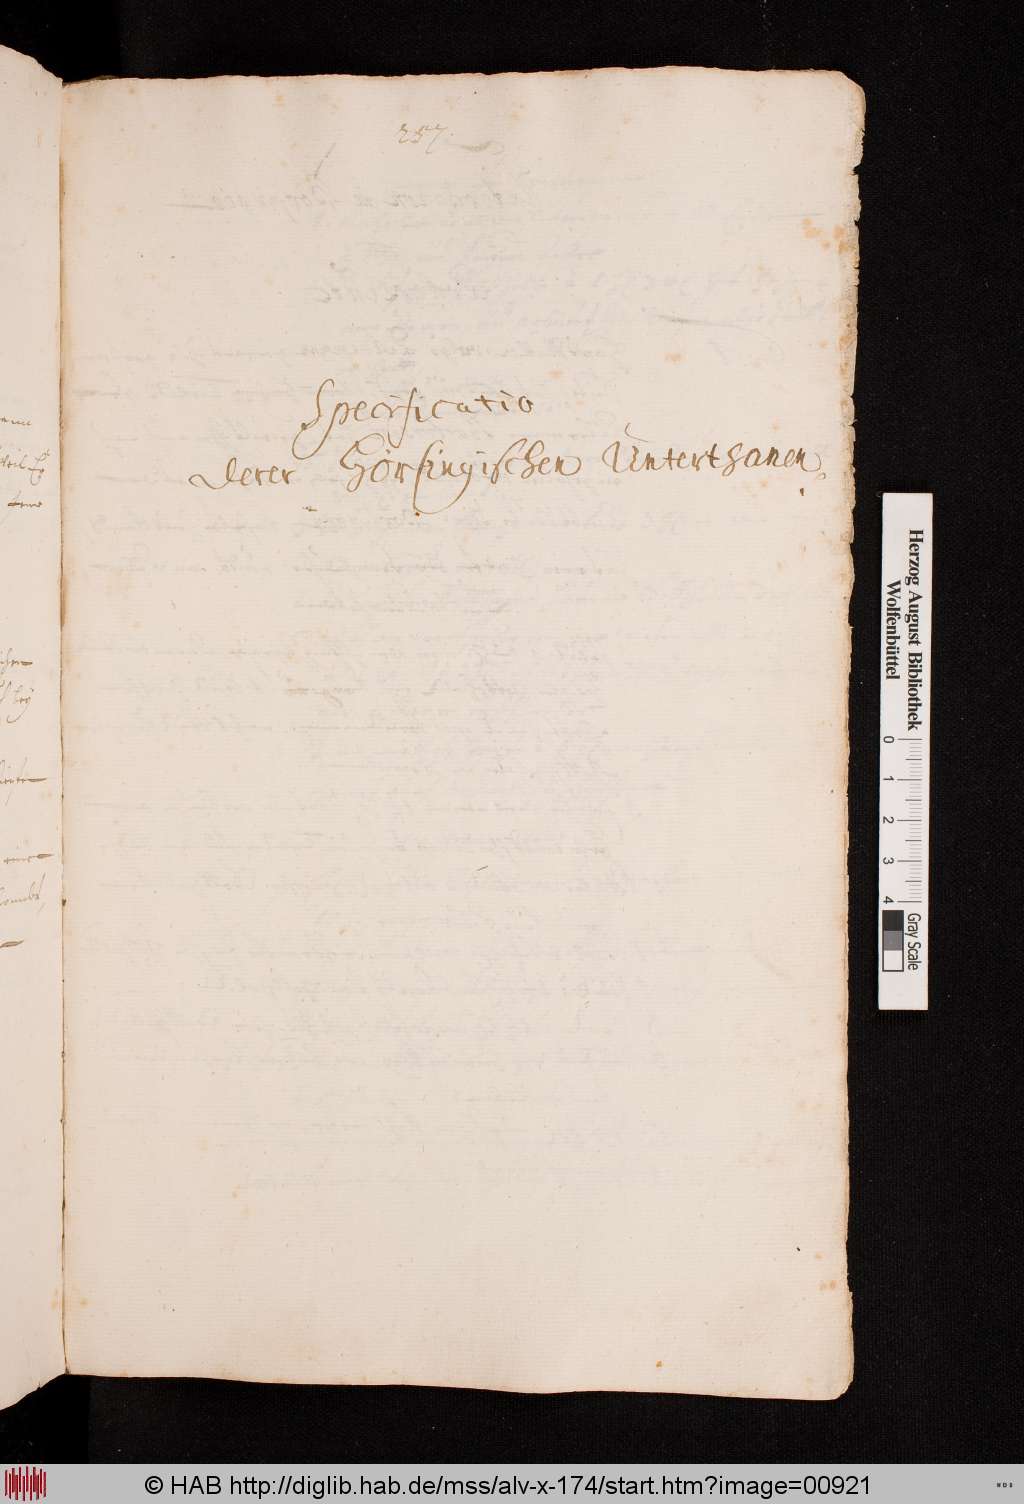 257.
Specificatio
derer Hörsingischen Unterthanen.
Herzog August Bibliothek
Wolfenbüttel
0 1 2 3 4
Gray Scale
© HAB http://diglib.hab.de/mss/alv-x-174/start.htm?image=00921